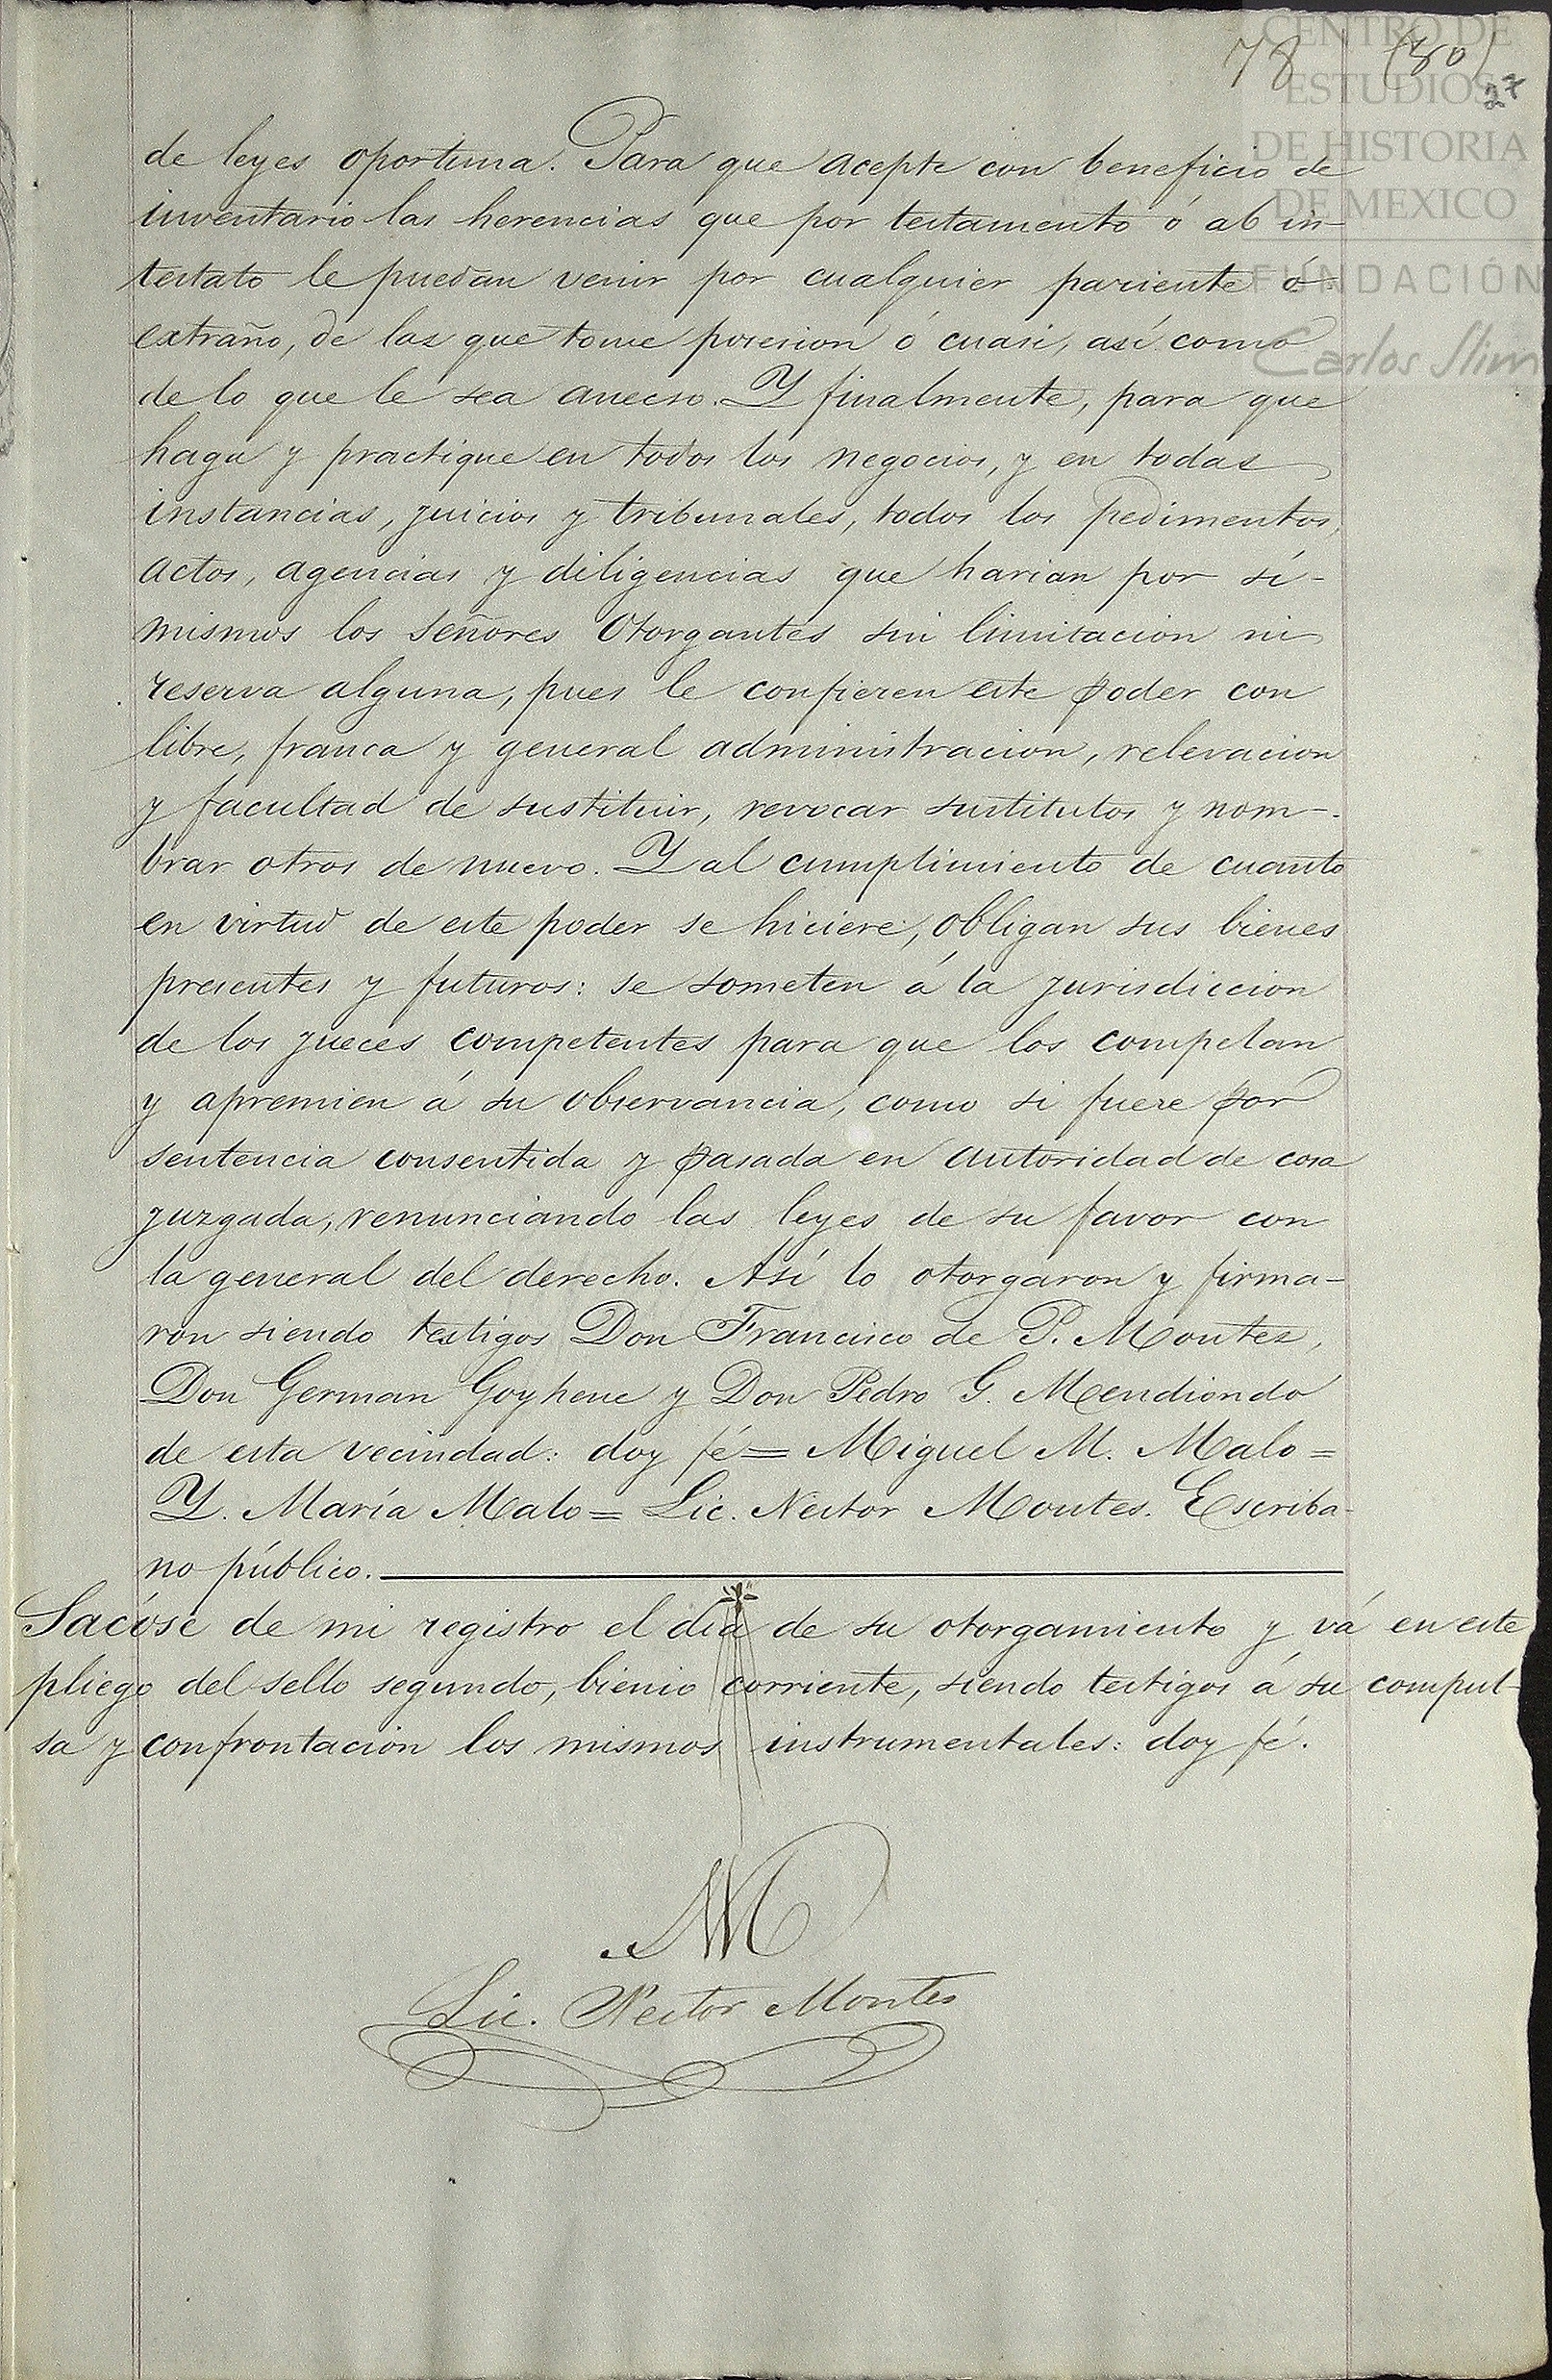 78 (80)
27
CENTRO DE
ESTUDIOS
DE HISTORIA
DE MEXICO
FUNDACIÓN
Carlos Slim
de leyes oportuna. Para que acepte con beneficio de
inventario las herencias que por testamento ó ab in-
testato le puedan venir por cualquier pariente ó
extraño, de las que tome posesion ó cuasi, así como
de lo que le sea anecso. Y finalmente, para que
haga y practique en todos los negocios, y en todas
instancias, juicios y tribunales, todos los pedimentos,
actos, agencias y diligencias que harian por sí-
mismos los Señores Otorgantes sin limitacion ni
reserva alguna, pues le confieren este poder con
libre, franca y general administracion, relevacion
y facultad de sustituir, revocar sustitutos y nom-
brar otros de nuevo. Y al cumplimiento de cuanto
en virtud de este poder se hiciere, obligan sus bienes
presentes y futuros: se someten á la jurisdiccion
de los jueces competentes para que los compelan
y apremien á su observancia, como si fuere por
sentencia consentida y pasada en autoridad de cosa
juzgada, renunciando las leyes de su favor con
la general del derecho. Así lo otorgaron y firma-
ron siendo testigos Don Francisco de P. Montes,
Don German Goyhene y Don Pedro G. Mendiondo
de esta vecindad: doy fé = Miguel M. Malo =
Y. María Malo = Lic. Nestor Montes. Escriba-
no público.
Sacóse de mi registro el dia de su otorgamiento y vá en este
pliego del sello segundo, bienio corriente, siendo testigos á su compul-
sa y confrontacion los mismos instrumentales: doy fé.
Lic. Nestor Montes